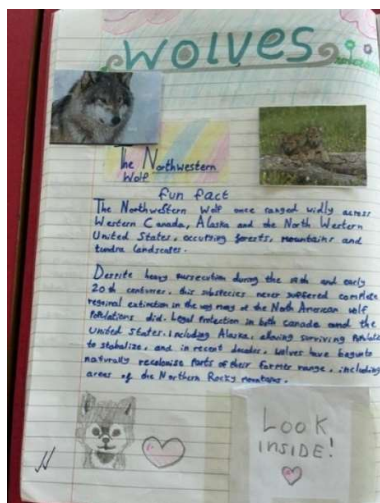 WOLVES
The Northwestern
Wolf
fun fact
The Northwestern Wolf once ranged widly across
Western Canada, Alaska and the North Western
United States, occupying forests, mountains and
tundra landscapes.
Despite heavy persecution during the 19th and early
20th centuries, this subspecies never suffered complete
regional extinction in the way many of the North American wolf
Populations did. Legal protection in both Canada and the
United States, including Alaska, allowing surviving
to stabalize, and in recent decades, wolves have begun to
naturally recolonise parts of their former range, including
areas of the Northern Rocky mountains.
LOOK
INSIDE!